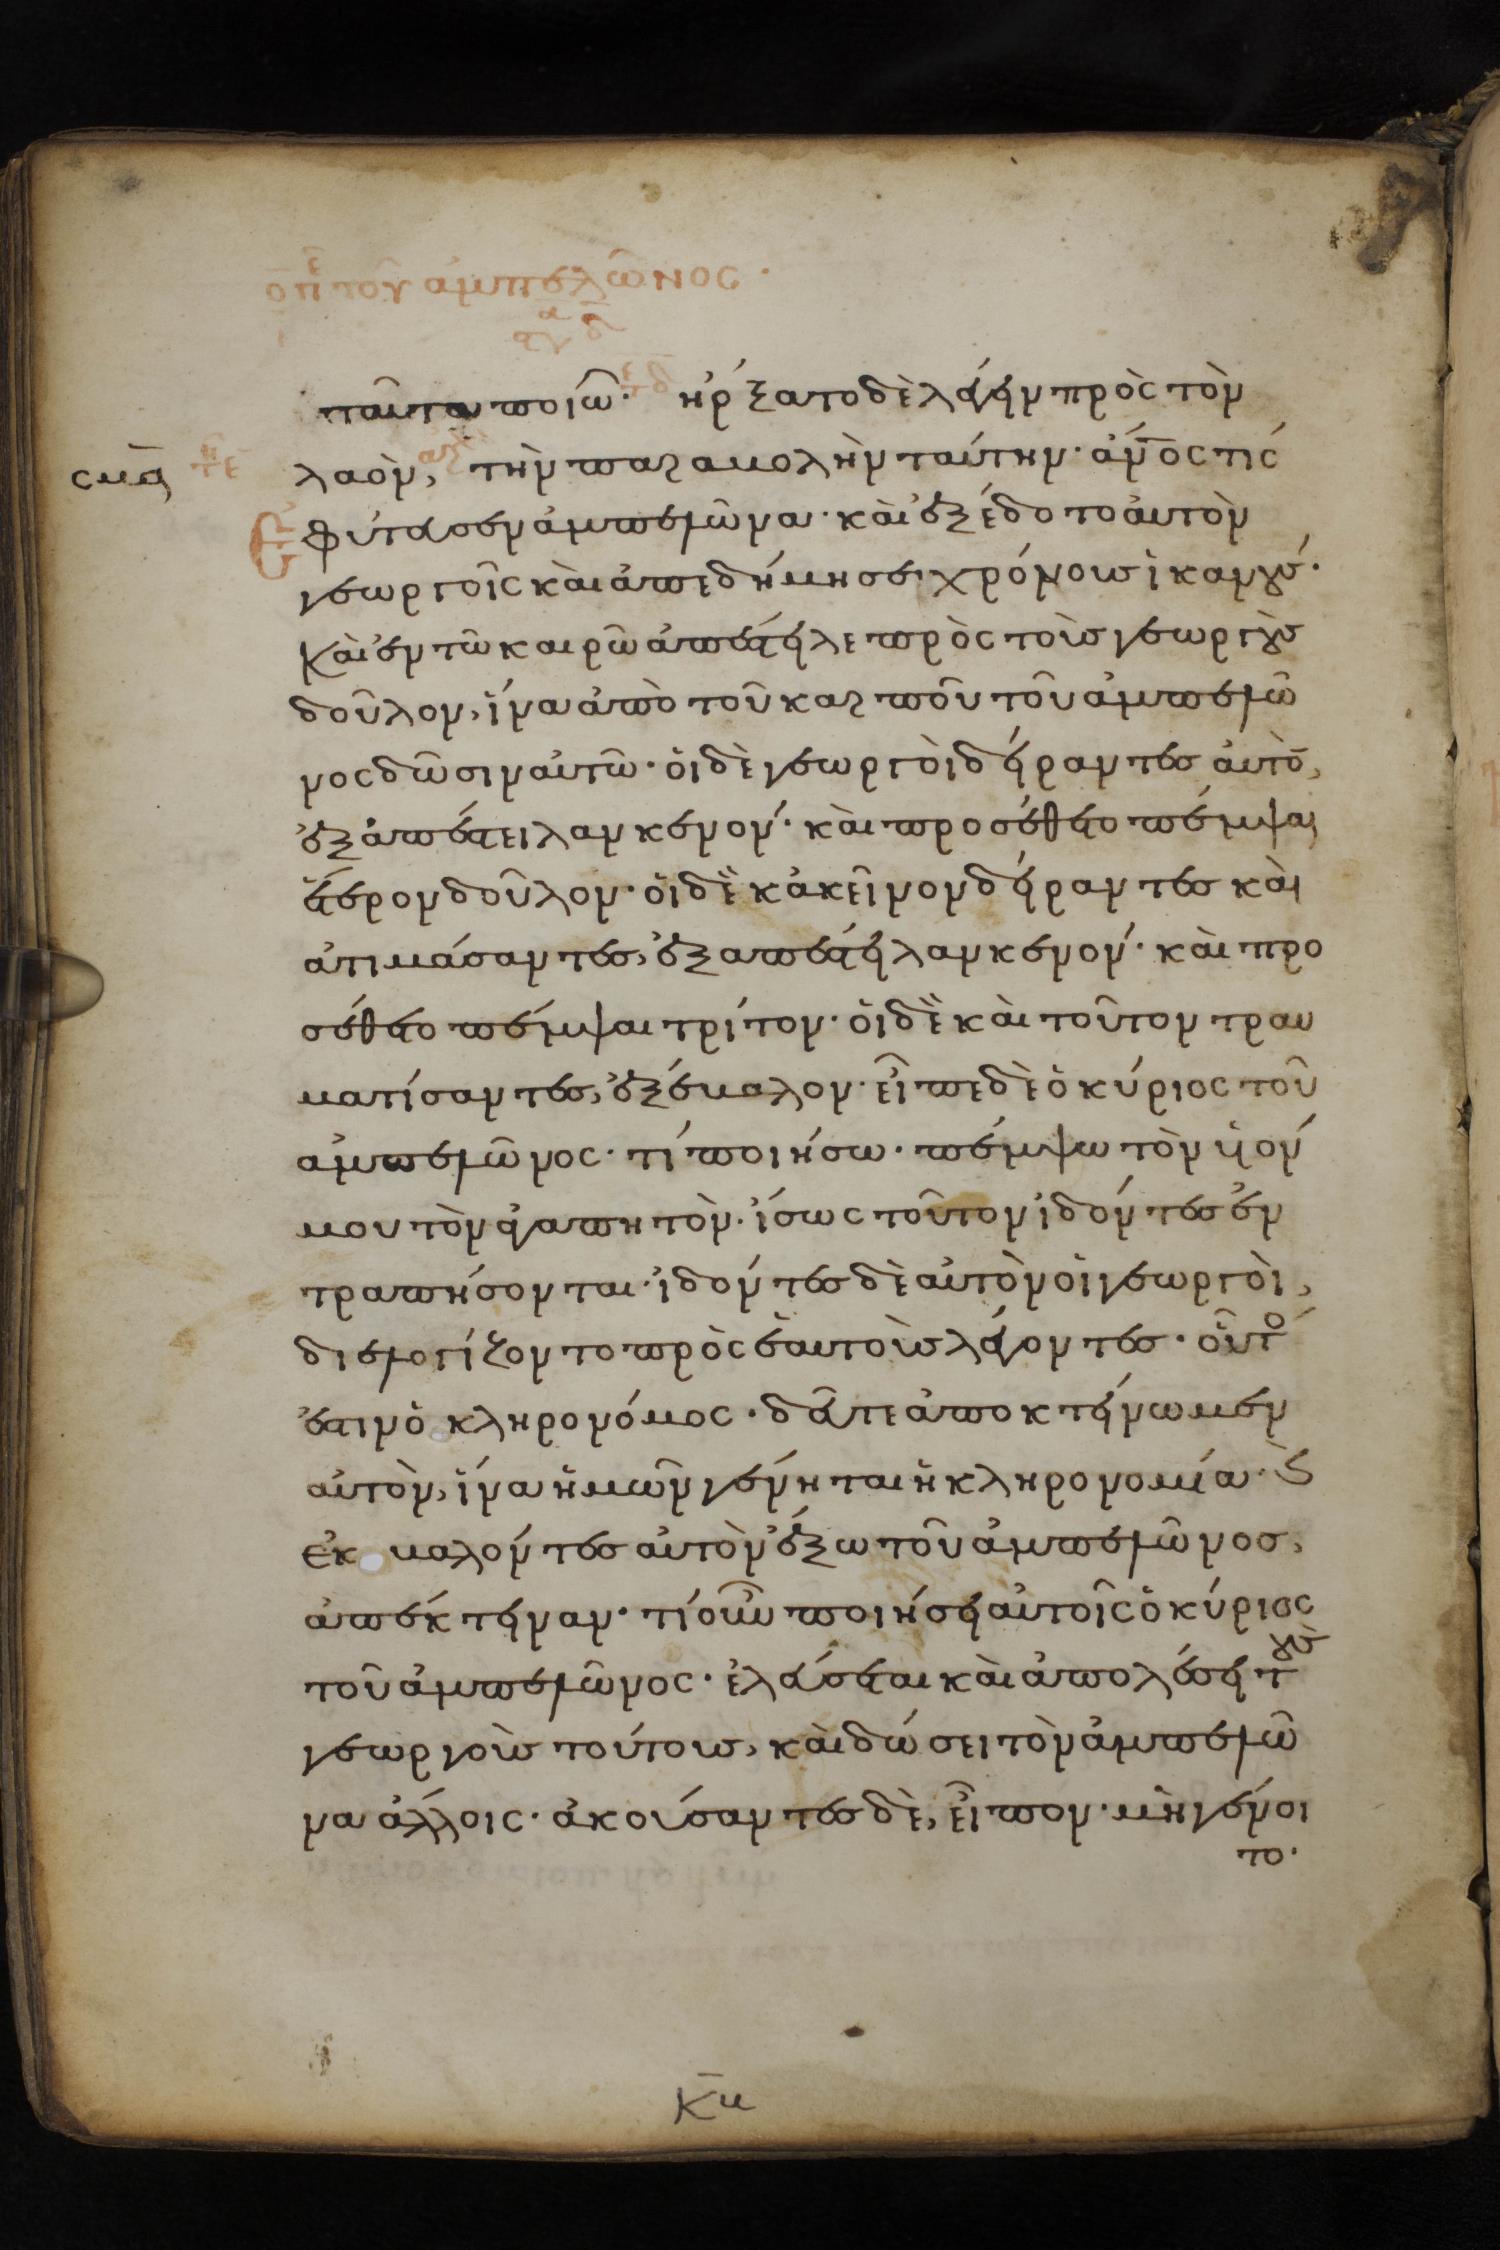 τοῦ ἀμπελῶνος·
ταῦτα ποιῶ· ἤρξατο δὲ λέγειν πρὸς τὸν
σμα λαὸν, τὴν παραβολὴν ταύτην· ἄν̅ος τίς
ἐφύτευσεν ἀμπελῶνα· καὶ ἐξέδοτο αὐτὸν
γεωργοῖς καὶ ἀπεδήμησε χρόνους ἱκανούς·
καὶ ἐν τῶ καιρῶ ἀπέστειλε πρὸς τοὺς γεωργοὺς
δοῦλον, ἵνα ἀπὸ τοῦ καρποῦ τοῦ ἀμπελῶ
νος δῶσιν αὐτῶ· οἱ δὲ γεωργοὶ δείραντες αὐτὸ̅,
ἐξαπέστειλαν κενόν· καὶ προσέθετο πέμψαι
ἕτερον δοῦλον· οἱ δὲ κἀκεῖνον δείραντες καὶ
ἀτιμάσαντες, ἐξαπέστειλαν κενόν· καὶ προ
σέθετο πέμψαι τρίτον· οἱ δὲ καὶ τοῦτον τραυ
ματίσαντες, ἐξέβαλον· εἶπε δὲ ὁ κύριος τοῦ
ἀμπελῶνος· τί ποιήσω· πέμψω τὸν υἱόν
μου τὸν ἀγαπητὸν· ἴσως τοῦτον ἰδόντες ἐν
τραπήσονται· ἰδόντες δὲ αὐτὸν οἱ γεωργοὶ,
διελογίζοντο πρὸς ἑαυτοὺς λέγοντες· οὗτό
ἐστιν ὁ κληρονόμος· δεῦτε ἀποκτείνωμεν
αὐτὸν, ἵνα ἡμῶν γένηται ἡ κληρονομία· ϗ
ἐκβαλόντες αὐτὸν ἔξω τοῦ ἀμπελῶνος,
ἀπέκτειναν· τί οὖν ποιήσει αὐτοῖς ὁ κύριος
τοῦ ἀμπελῶνος· ἐλεύσεται καὶ ἀπολέσει τοὺς
γεωργοὺς τούτους, καὶ δώσει τὸν ἀμπελῶ
να ἄλλοις· ἀκούσαντες δὲ, εἶπον· μὴ γένοι
το·